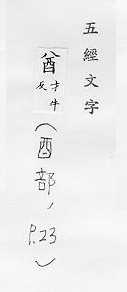 五經文字
酋
才牛
反
(酉部, P.23)